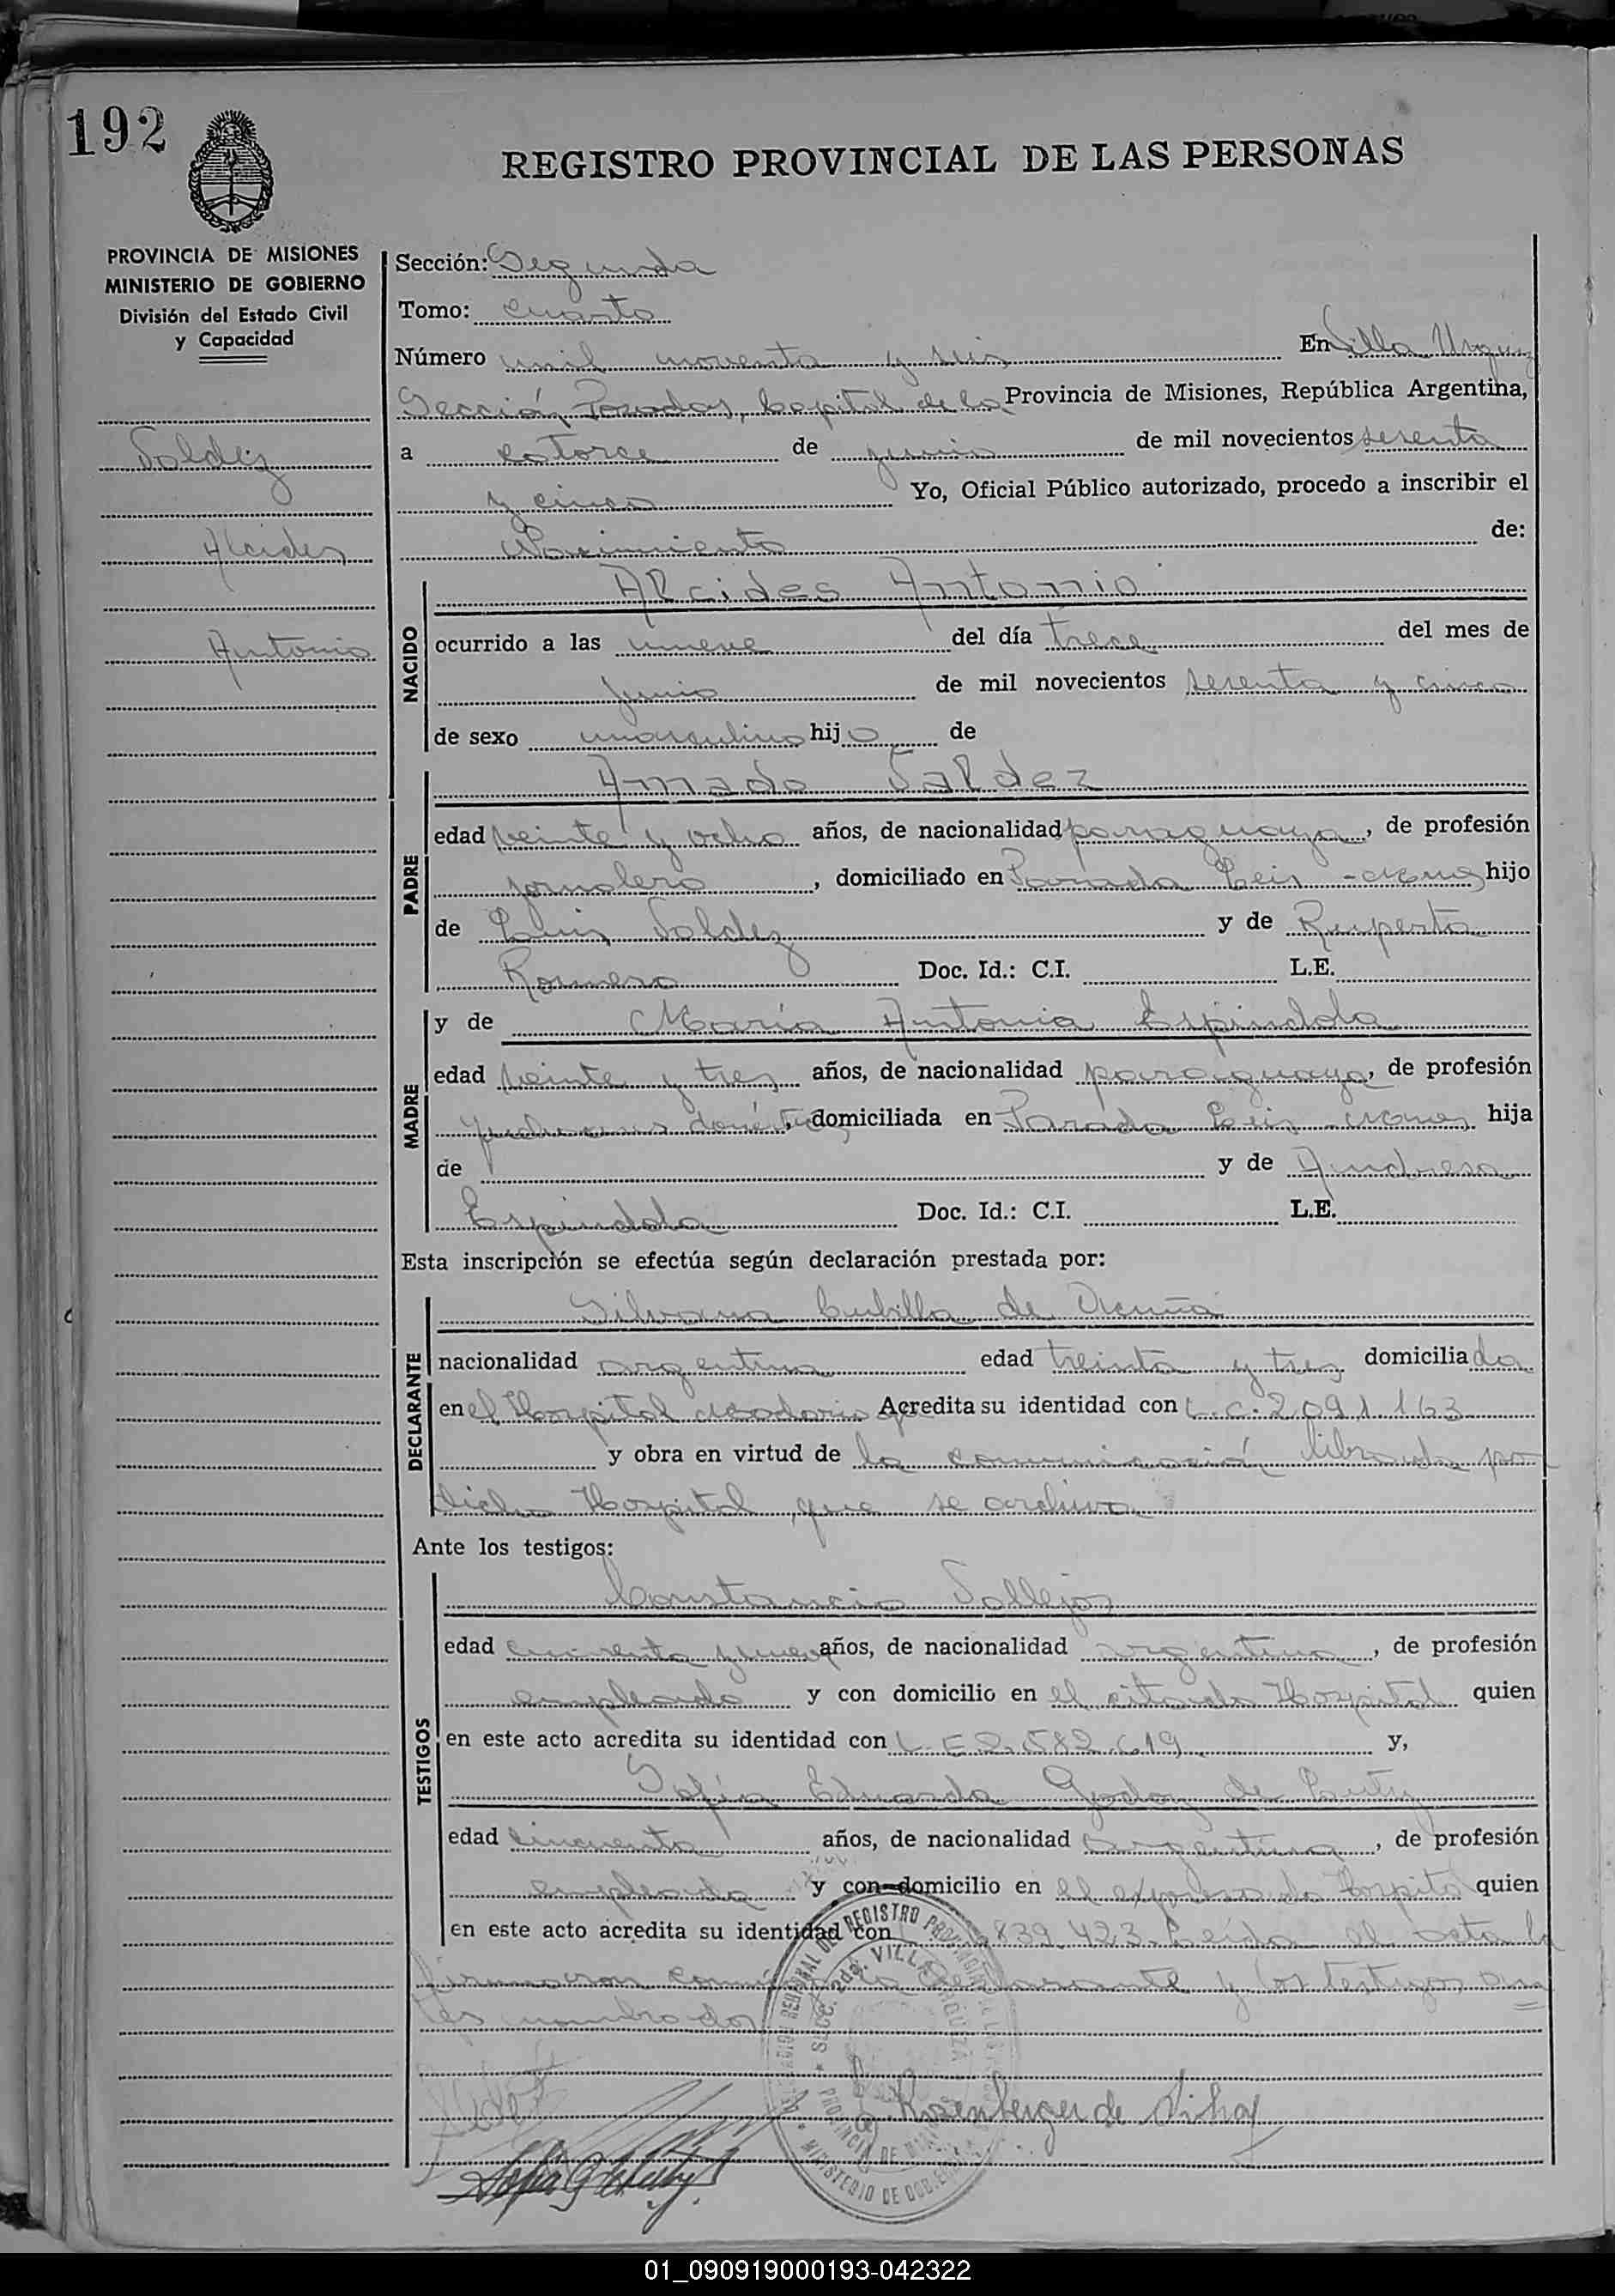 192
REGISTRO PROVINCIAL DE LAS PERSONAS
PROVINCIA DE MISIONES
MINISTERIO DE GOBIERNO
División del Estado Civil
y Capacidad
Valdez
Alcides
Antonio
Sección: Segunda
Tomo: cuarto
Número mil noventa y seis En Villa Urquiza
Sección Posadas, Capital de la Provincia de Misiones, República Argentina,
a catorce de junio de mil novecientos sesenta
y cinco Yo, Oficial Público autorizado, procedo a inscribir el
Nacimiento de:
NACIDO
Alcides Antonio
ocurrido a las nueve del día trece del mes de
junio de mil novecientos sesenta y cinco
de sexo masculino hijo de
PADRE
Amado Valdez
edad veinte y ocho años, de nacionalidad paraguaya, de profesión
jornalero, domiciliado en Parada Leis hijo
de Luis Valdez y de Ruperta
Romero Doc. Id.: C.I. L.E.
MADRE
y de María Antonia Espindola
edad veinte y tres años, de nacionalidad paraguaya, de profesión
domiciliada en Parada Leis hija
de y de Andresa
Espindola Doc. Id.: C.I. L.E.
Esta inscripción se efectúa según declaración prestada por:
DECLARANTE
Silvana Cubilla de Acuña
nacionalidad argentina edad treinta y tres domiciliada
en el Hospital Madariaga Acredita su identidad con L.C. 2.091.163
y obra en virtud de la comunicación librada por
dicho Hospital que se archiva
Ante los testigos:
TESTIGOS
Constancio Vallejos
edad años, de nacionalidad argentina, de profesión
empleado y con domicilio en el citado Hospital quien
en este acto acredita su identidad con L.E 2.582.619 y,
Sofía Eduarda Godoy de
edad cincuenta años, de nacionalidad argentina, de profesión
empleada y con domicilio en el expresado Hospital quien
en este acto acredita su identidad con 839.423. Leída el acta la
firmaron conmigo la declarante y los testigos an
tes nombrados
MINISTERIO DE GOBIERNO
01_090919000193-042322